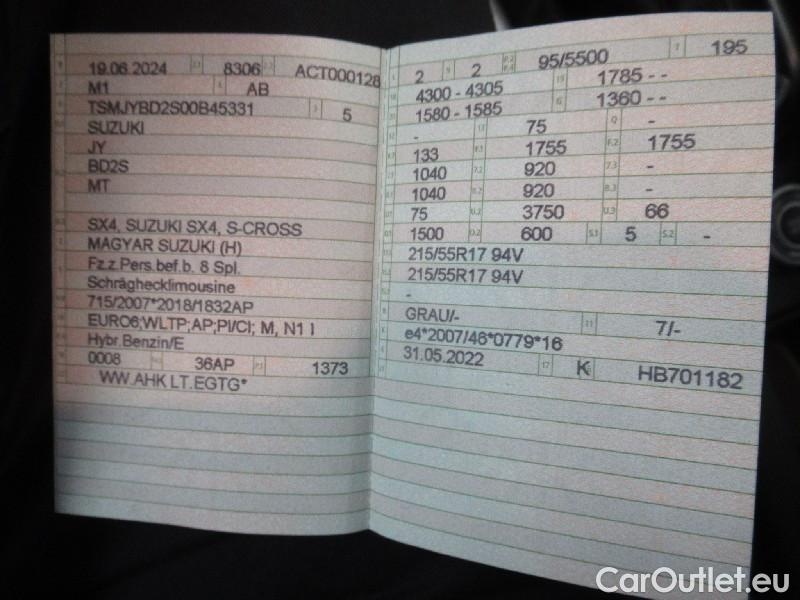 19.06.2024 8306 ACT000128
M1 AB
TSMJYBD2S00B45331 5
SUZUKI
JY
BD2S
MT
SX4, SUZUKI SX4, S-CROSS
MAGYAR SUZUKI (H)
Fz.z.Pers.bef.b. 8 Spl.
Schräghecklimousine
715/2007*2018/1832AP
EURO6;WLTP;AP;PI/CI; M, N1 I
Hybr.Benzin/E
0008 36AP 1373
WW.AHK LT.EGTG*
2 2 95/5500 195
4300 - 4305 1785 - -
1580 - 1585 1360 - -
- 75 Q -
133 1755 F.2 1755
1040 920 7.3 -
1040 920 8.3 -
75 3750 U.3 66
1500 600 S.1 5 S.2 -
215/55R17 94V
215/55R17 94V
-
GRAU/- 11 7/-
e4*2007/46*0779*16
31.05.2022 17 K HB701182
CarOutlet.eu